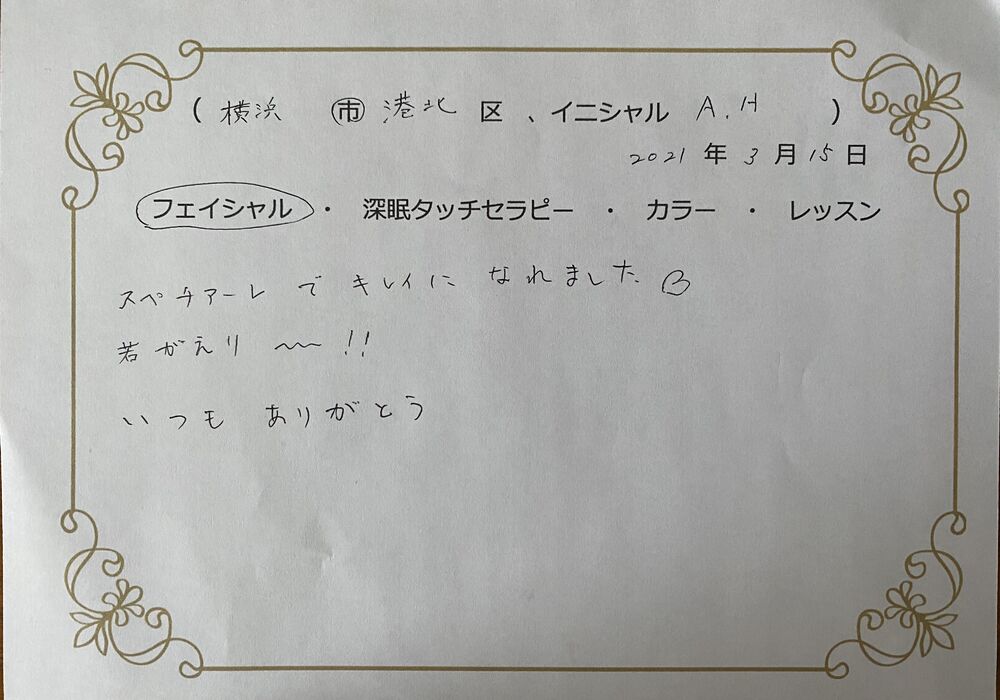 ( 横浜 市 港北 区 、イニシャル A.H )
2021 年 3 月 15 日
フェイシャル ・ 深眠タッチセラピー ・ カラー ・ レッスン
スペチアーレ で キレイに なれました♡
若がえり 〜〜 !!
いつも ありがとう